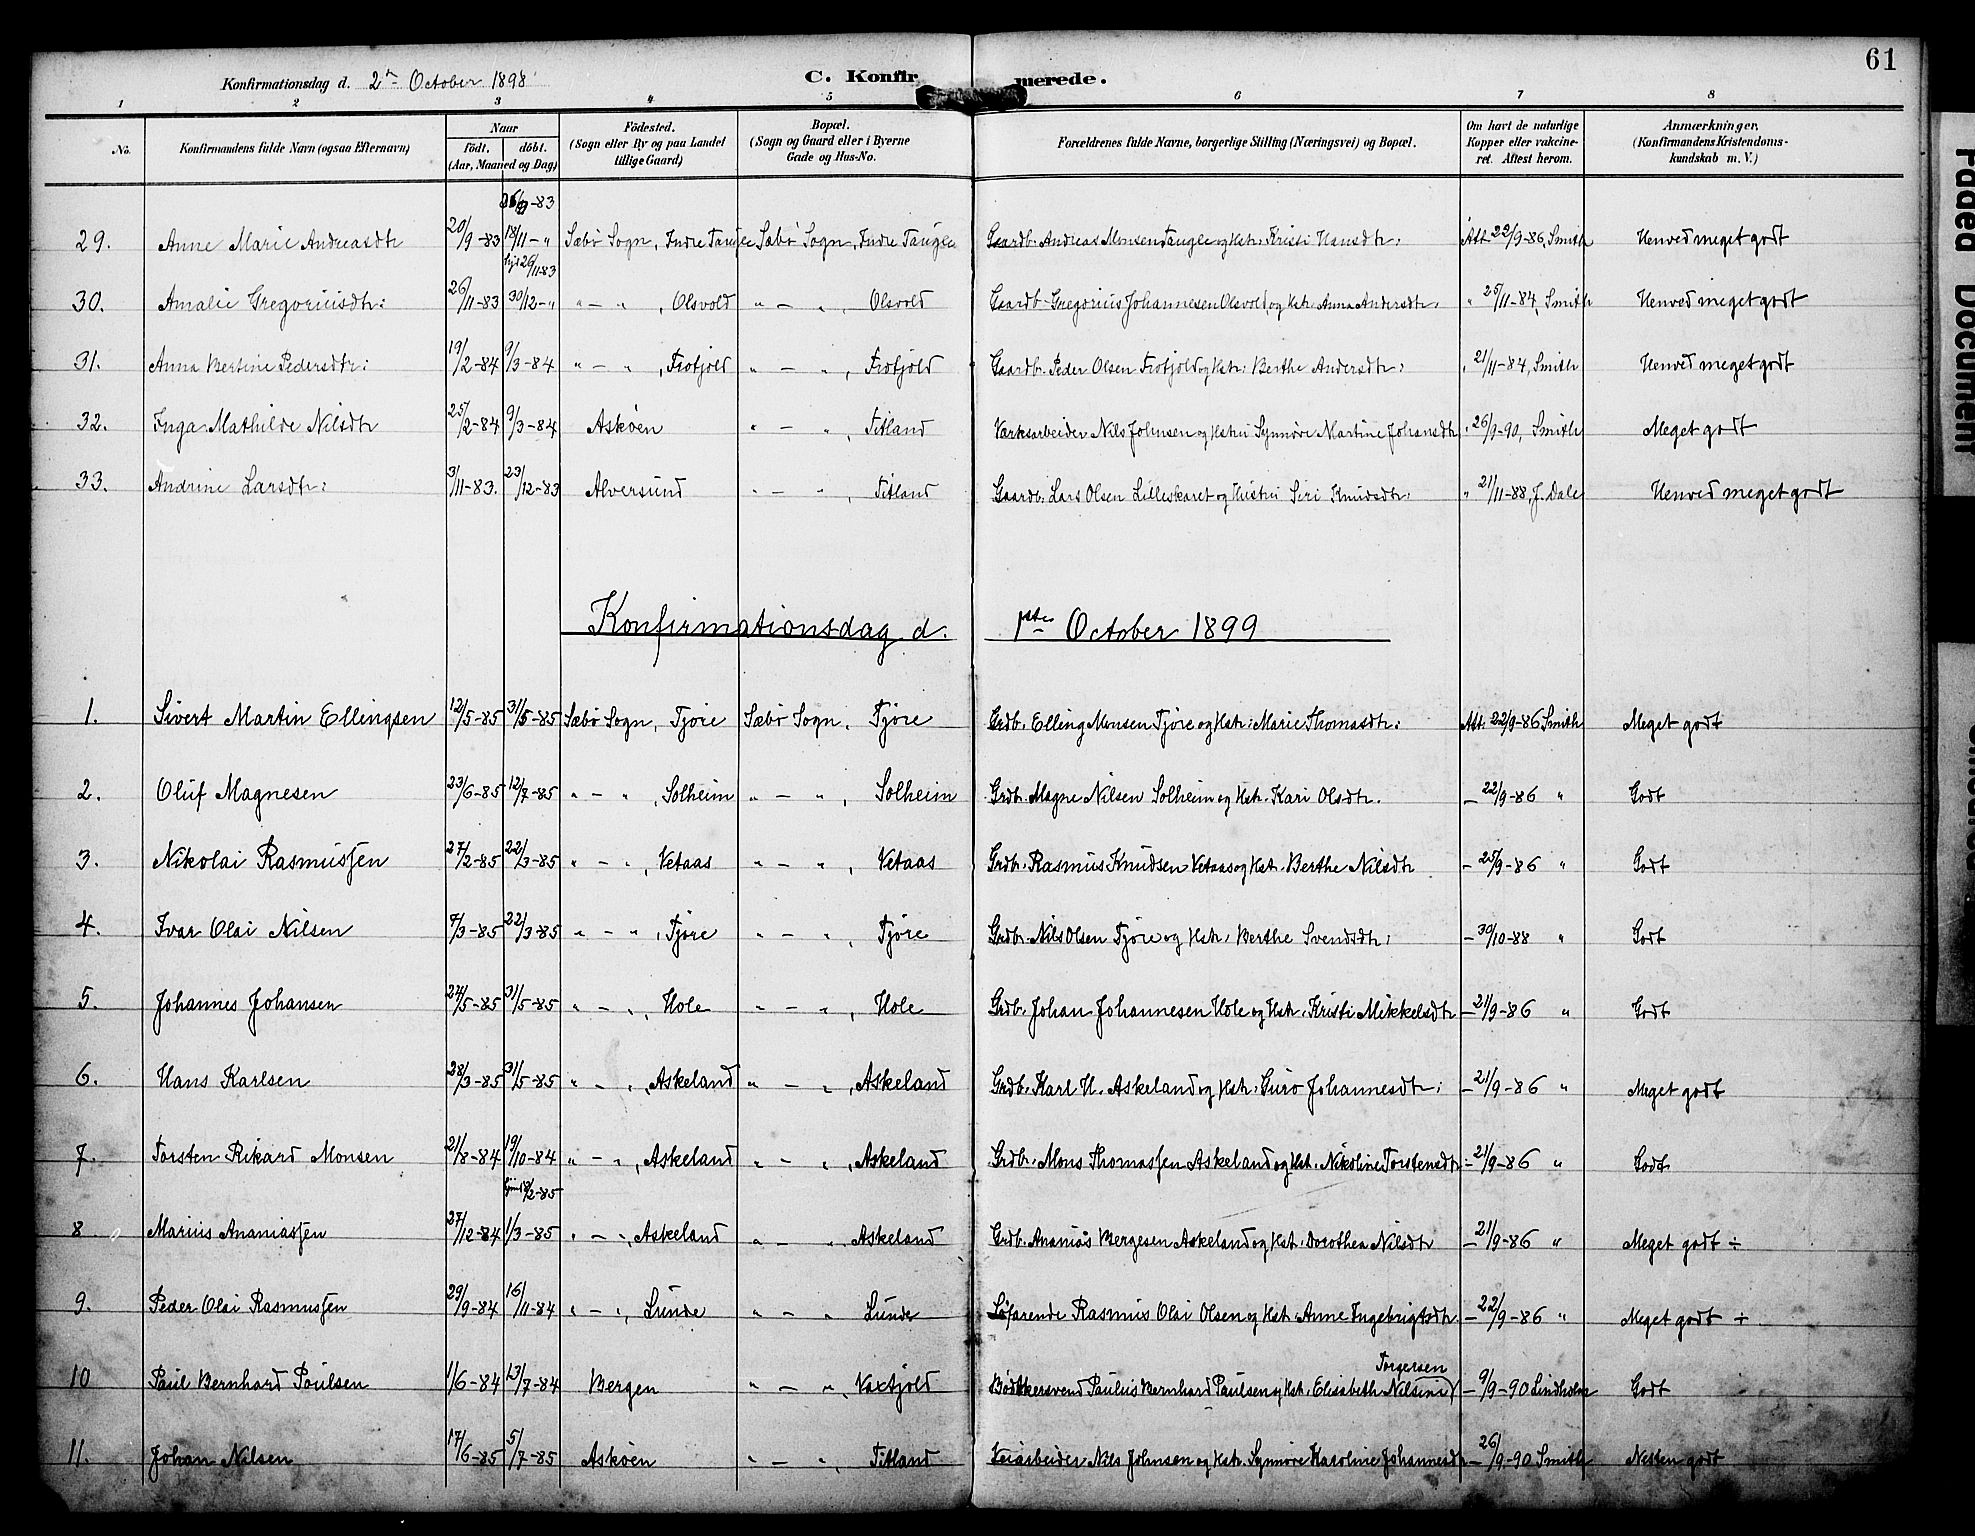 61
Konfirmationsdag d. 2den October 1898
C. Konfirmerede.
1 2 3 4 5 6 7 8
No. Konfirmandens fulde Navn (ogsaa Efternavn) Naar Födt. döbt. (Aar, Maaned og Dag) Födested. (Sogn eller By og paa Landet tillige Gaard) Bopæl. (Sogn og Gaard eller i Byerne Gade og Hus-No. Forældrenes fulde Navne, borgerlige Stilling (Næringsvei) og Bopæl. Om havt de naturlige Kopper eller vakcineret. Attest herom. Anmærkninger. (Konfirmandens Kristendomskundskab m. V.)
29. Anne Marie Andreasdtr 20/9-83 18/11-" Sæbø Sogn, Indre Tangle Sæbø Sogn, Indre Tangle Gaardb. Andreas Monsen Tangle og Hstr: Kristi Hansdtr: Att. 22/9-86, Smith Henved meget godt
30. Amalie Gregoriusdtr: 26/11-83 30/12-" " — " , Olsvold " — " , Olsvold Gaardb. Gregorius Johannesen Olsvold, og Hstr: Anna Andersdtr. " 25/11-84, Smith Henved meget godt
31. Anna Bertine Pedersdtr: 19/2-84 9/3-84 " — " , Frotjold " — " , Frotjold Gaardb. Peder Olsen Frotjold og Hstr: Berthe Andersdtr: " 21/11-84, Smith Henved meget godt
32. Inga Mathilde Nilsdtr 25/2-84 9/3-84 Askøen " — " , Titland Værksarbeider Nils Johnsen og Hstru Synnøve Martine Johansdtr " 26/9-90, Smith Meget godt
33. Andrine Larsdtr: 3/11-83. 23/12-83 Alversund " — " , Titland Gaardb. Lars Olsen Lilleskaret og Hustru Siri Knudsdtr. " 21/11-88, J. Dale Henved meget godt
Konfirmationsdag d. 1ste October 1899
1. Sivert Martin Ellingsen 12/5-85 31/5-85 Sæbø Sogn, Tjøre Sæbø Sogn, Tjøre Grdb. Elling Monsen Tjøre og Hstr: Marie Thomasdtr: Att. 22/9-86 Smith Meget godt
2. Oluf Magnesen 23/6-85 12/7-85 " — " , Solheim " — " , Solheim Grdb. Magne Nilsen Solheim og Hstr. Kari Olsdtr. — 22/9-86 " Godt
3. Nikolai Rasmussen 27/2-85 22/3-85 " — " , Vetaas " — " , Vetaas Grdb. Rasmus Knudsen Vetaas og Hstr. Berthe Nilsdtr — 25/9-86 " Godt
4. Ivar Olai Nilsen 7/3-85 22/3-85 " — " , Tjøre " — " , Tjøre Grdb. Nils Olsen Tjøre og Hstr: Berthe Svendsdtr: — 30/10-88 " Godt
5. Johannes Johansen 24/5-85 31/5-85 " — " , Hole " — " , Hole Grdb. Johan Johannesen Hole og Hstr. Kristi Mikkelsdtr — 21/9-86 " Godt
6. Hans Karlsen 28/3-85 31/5-85 " — " , Askeland " — " , Askeland Grdb. Karl H. Askeland og Hstr: Guro Johannesdtr: — 21/9-86 " Meget godt
7. Torsten Rikard Monsen 21/8-84 19/10-84 " — " , Askeland " — " , Askeland Grdb. Mons Thomassen Askeland og Hst. Nikoline Torstensdtr: — 21/9-86 " Godt
8. Marius Ananiassen 27/12-84 1/3-85 " — " , Askeland " — " , Askeland Grdb. Ananias Børgesen Askeland og Hstr. Dorothea Nilsdtr — 21/9-86 " Meget godt ÷
9. Peder Olai Rasmussen 29/9-84 16/11-84 " — " , Lunde " — " Lunde Søfarende Rasmus Olai Olsen og Hstr. Anne Ingebrigtsdtr. — 22/9-86 " Meget godt ÷
Torgersen
10 Paul Bernhard Paulsen 1/6-84 13/7-84 Bergen " — " , Vaxtjold Bødkersvend Paulus Bernhard Paulsen og Hstr. Elisabeth Nilsine — 9/9-90 Lindholm Godt
11. Johan Nilsen 17/6-85 5/7-85 Askøen " — " , Titland Veiarbeider Nils Johnsen og Hstr. Synnøve Karoline Johannesdtr — 26/9-90 Smith Nesten godt
Faded Document